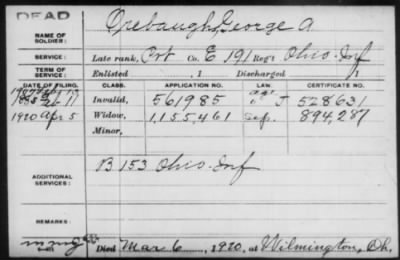 DEAD
NAME OF SOLDIER: Orebaugh, George A
SERVICE: Late rank, Pvt Co. E 191 Reg't Ohio Inf
TERM OF SERVICE: Enlisted , 1 Discharged , 1
DATE OF FILING. CLASS. APPLICATION NO. LAW. CERTIFICATE NO.
Invalid, 561985 J 528631
1920 Apr 5 Widow, 1,155,461 894,287
Minor,
ADDITIONAL SERVICES: B 153 Ohio Inf
REMARKS:
Died Mar 6, 1920, at Wilmington, Oh.